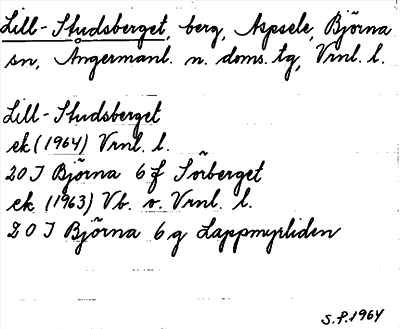 Lill-Studsberget, berg, Aspsele, Björna
sn, Ångermanl. n. doms. tg, Vrnl. l.
Lill-Studsberget
ek (1964) Vrnl. l.
20 J Björna 6 f Sörberget
ek (1963) Vb. o. Vrnl. l.
20 J Björna 6 g Lappmyrliden
S.P. 1964